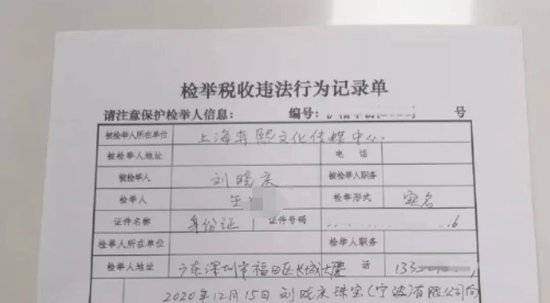 检举税收违法行为记录单
请注意保护检举人信息： 编号： 号
被检举人所在单位 上海莽熙文化传媒中心
被检举人地址 电话
被检举人 刘晓庆 被检举人职务
检举人 检举形式 实名
证件名称 身份证 证件号码 6
检举人所在单位 检举人职务
检举人地址 广东深圳市福田区长城大厦 电话 133
2020年12月15日刘晓庆珠宝(宁波)有限公司向